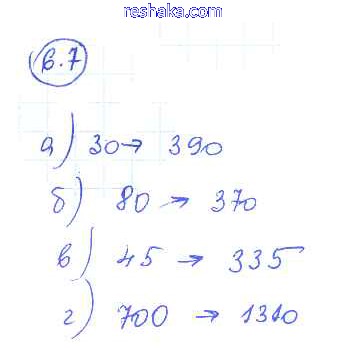 reshaka.com
6.7
а) 30 → 390
б) 80 → 370
в) 45 → 335
г) 700 → 1310